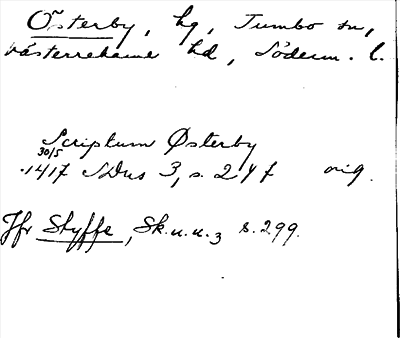 Österby, hg, Tumbo sn,
Västerrekarne hd, Söderm. l.
Scriptum Østerby
30/5
1417 SDns 3, s. 247 orig.
Jfr Styffe, Sk.u.u.3 s. 299.